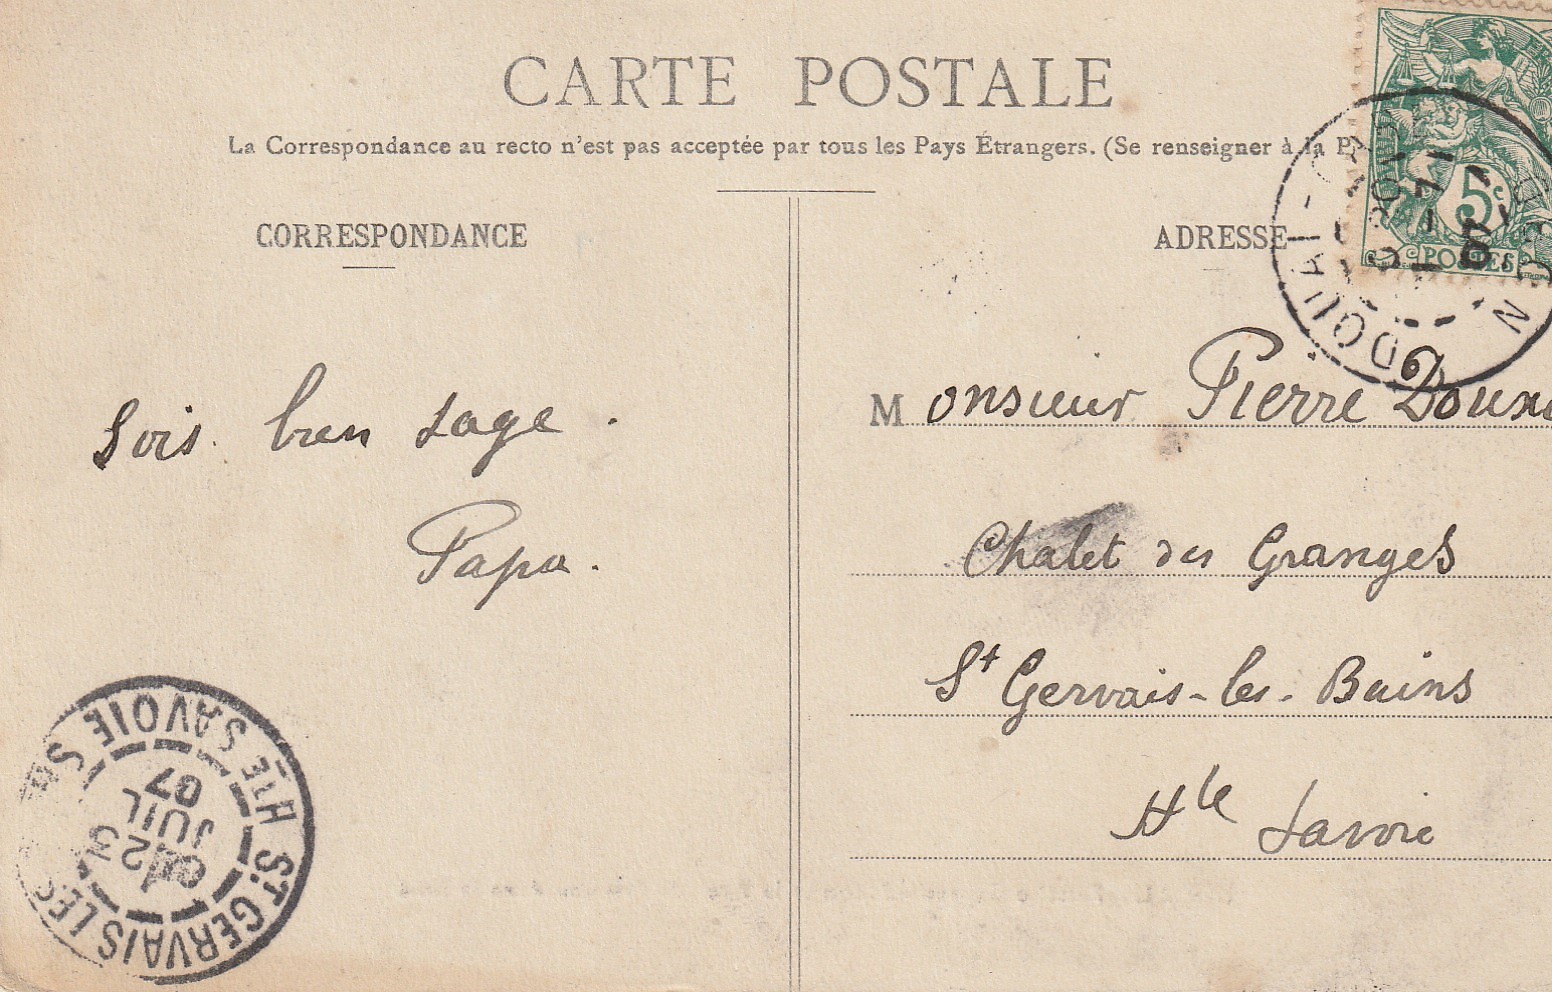 CARTE POSTALE
La Correspondance au recto n'est pas acceptée par tous les Pays Étrangers. (Se renseigner à la P
CORRESPONDANCE
ADRESSE
5c
POSTES
DOUAI
07
Sois bien sage.
Papa.
Monsieur Pierre
Chalet des Granges
St Gervais-les-Bains
Hte Savoie
ST GERVAIS LES
HTE SAVOIE
23
JUIL
07